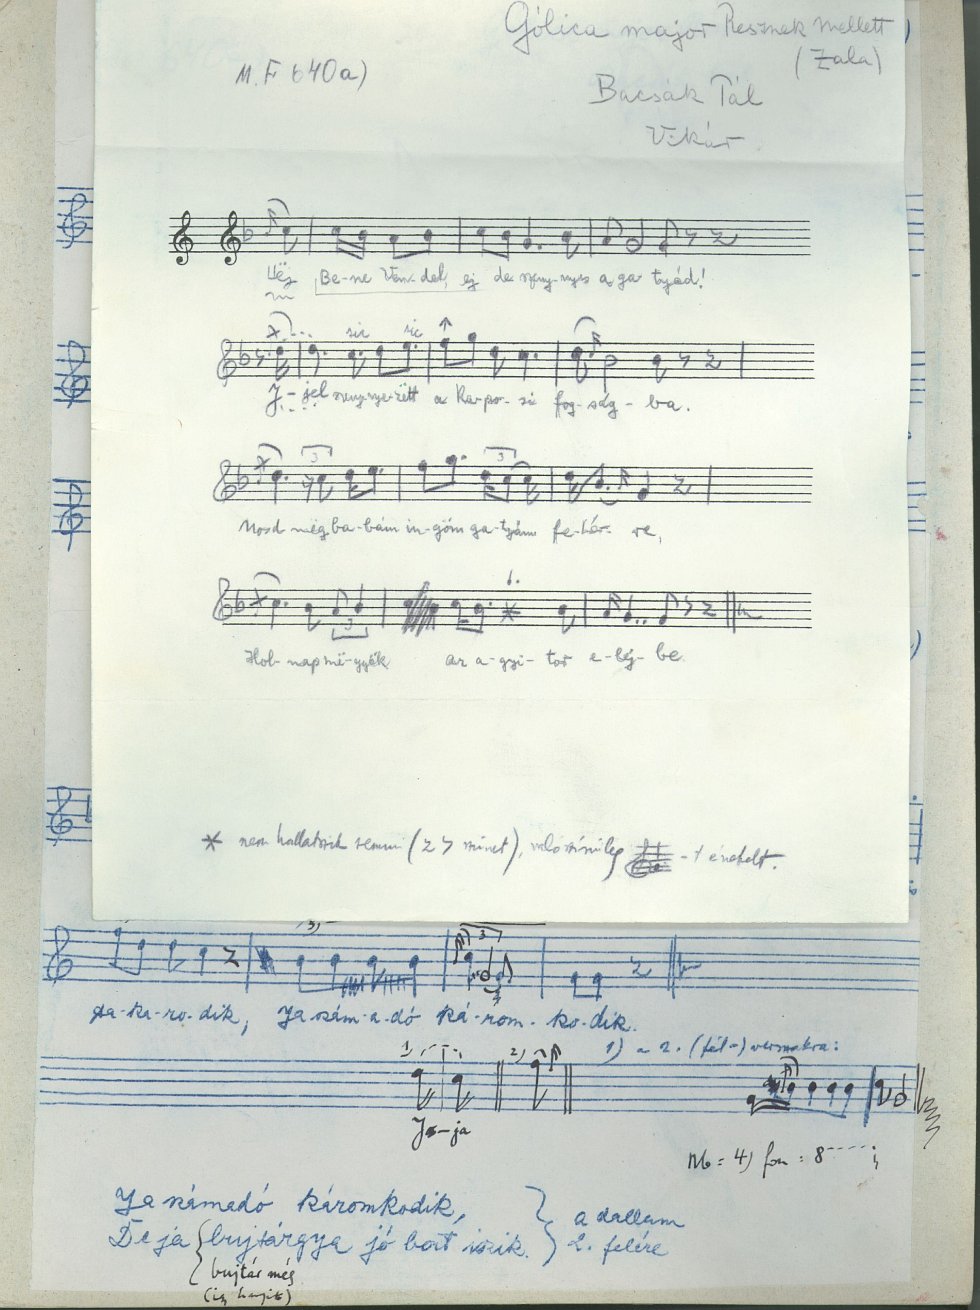 Gólica major Resznek mellett
(Zala)
M.F 640a)
Bacsák Pál
Vikár
Hëj Be-ne Ven-del, ej de szeny-nyes a ga tyád!
sic sic
J-jel szeny-nye-zëtt a Ka-po-si fog-ság-ba.
3 3
Mosd még ba-bám in-göm ga-tyám fe-hér-re,
3
Hol-nap më-gyök az a-gyi-tor e-léj-be.
* nem hallatszik semmi (mint), valószínűleg -t énekelt.
3) 3
za-ka-ro-dik, Ja szám-a-dó ká-rom-ko-dik.
1) 2) 1) a 2. (fél-) versszakra:
J-ja
Nb = 4) fon = 8
Ja számadó káromkodik,
De ja bujtárgya jó bort iszik.
a dallam
2. felére
bujtár még